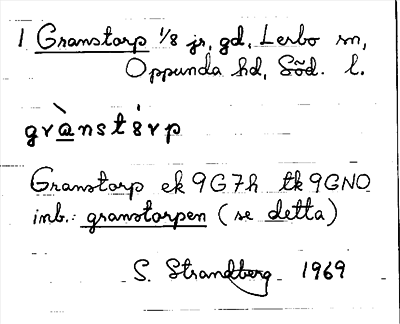 1 Granstorp 1/8 jr, gd, Lerbo sn,
Oppunda hd, Söd. l.
grànstȯrp
Granstorp ek 9G7h tk 9GNO
inb.: granstorpen (se detta)
S. Strandberg 1969